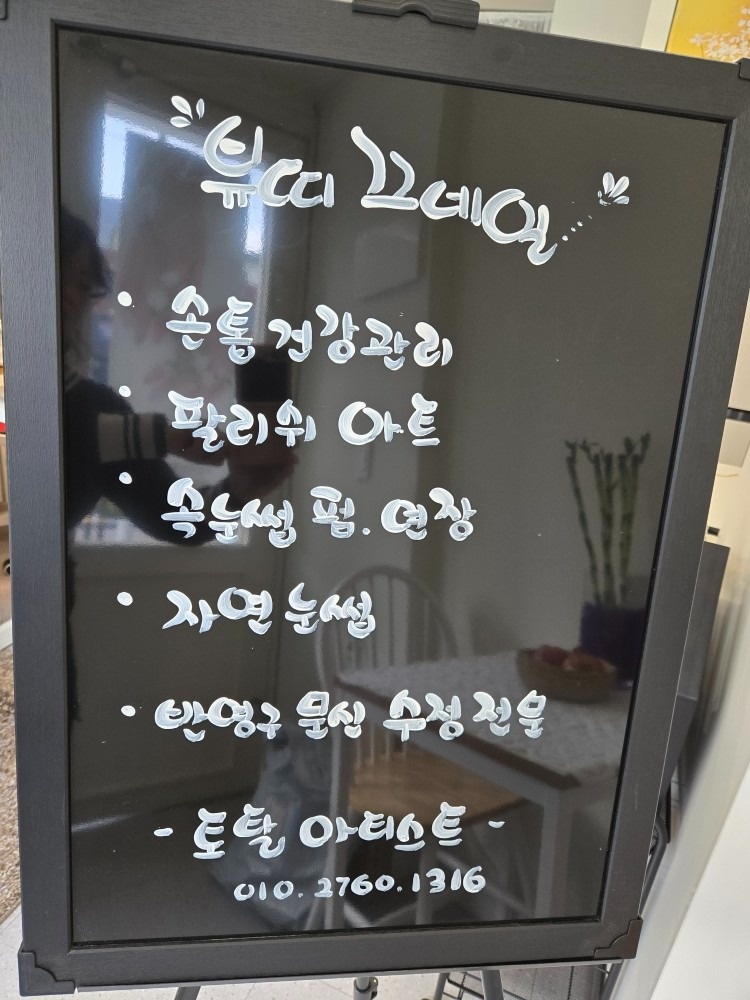 뷰띠끄네일
• 손톱건강관리
• 팔리쉬 아트
• 속눈썹 펌. 연장
• 자연눈썹
• 반영구 문신 수정전문
- 토탈 아티스트 -
010. 2760. 1316